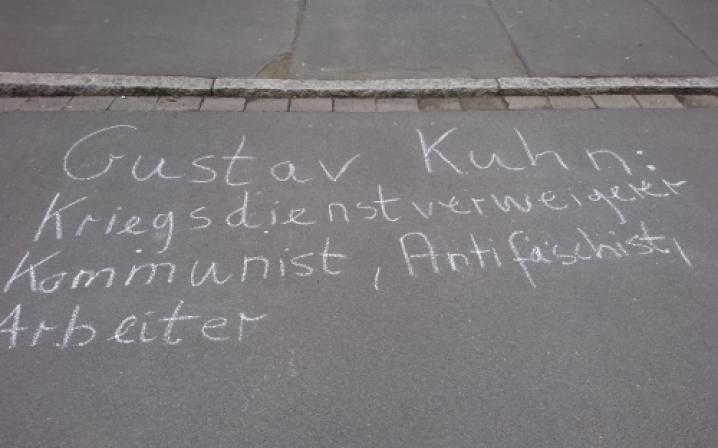 Gustav Kuhn:
Kriegsdienstverweigerer
Kommunist, Antifaschist,
Arbeiter